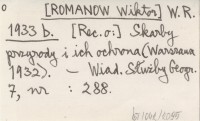 [ROMANOW Wiktor] W.R.
1933 b. [Rec. o:] Skarby
przyrody i ich ochrona (Warszawa
1932). - Wiad. Służby Geogr.
7, nr : 288.